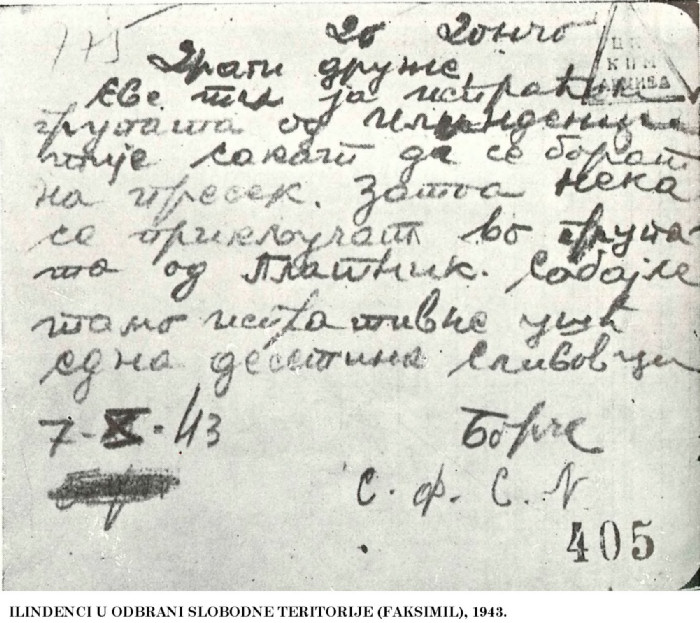 775
До Гончо
Драги друже
Еве ти ја испраќам
групата од Илинденци
тије сакат да се борат
на пресек. Затоа нека
се приклоучат во група-
та од Платник. Сабајле
тамо испративне ушт
една десетина Сливовци
7-X-43 Борче
С. Ф. С. N.
405
ЦК
КПМ
АРХИВА
ILINDENCI U ODBRANI SLOBODNE TERITORIJE (FAKSIMIL), 1943.